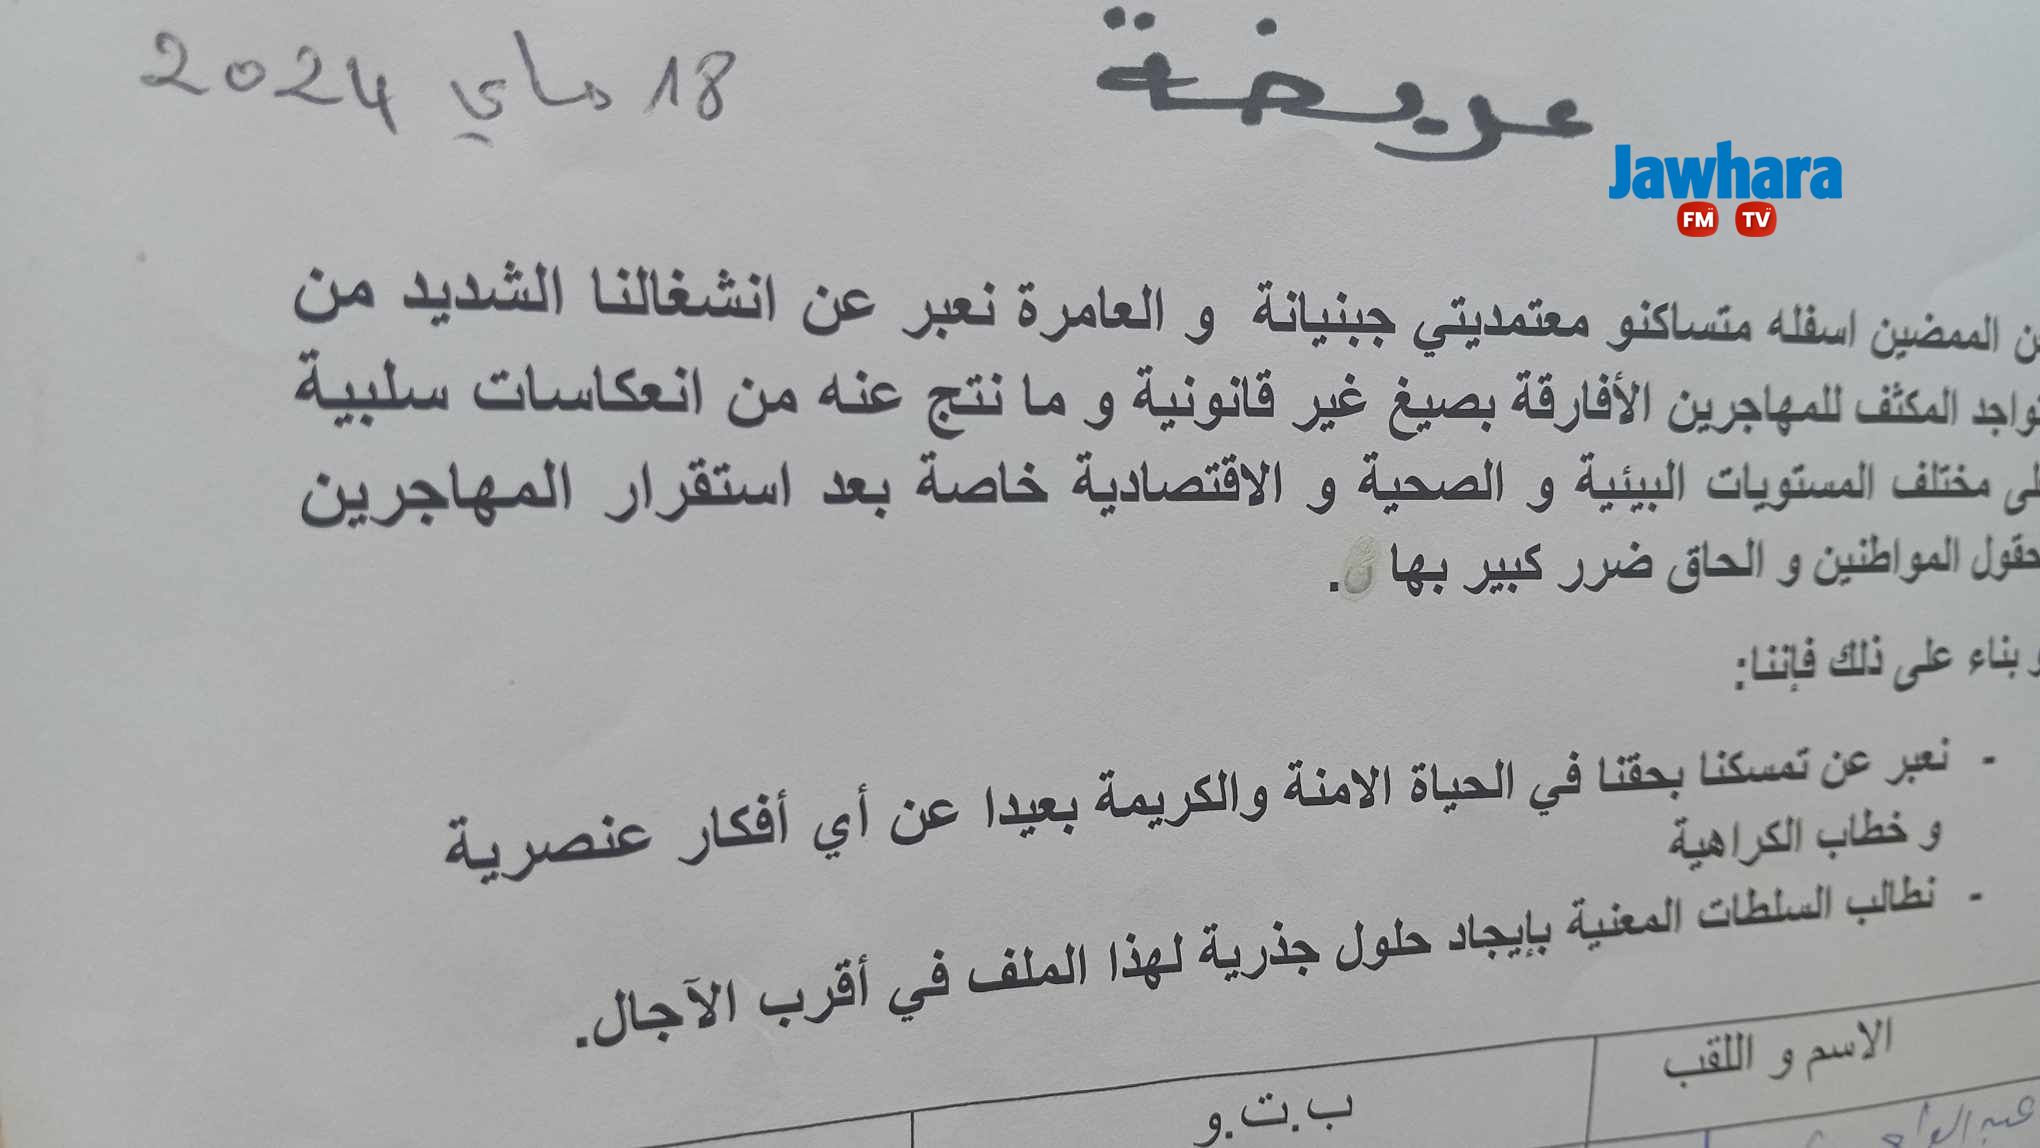 عريضة
18 ماي 2024
Jawhara
FM TV
الممضين اسفله متساكنو معتمديتي جبنيانة و العامرة نعبر عن انشغالنا الشديد من
المكثف للمهاجرين الأفارقة بصيغ غير قانونية و ما نتج عنه من انعكاسات سلبية
مختلف المستويات البيئية و الصحية و الاقتصادية خاصة بعد استقرار المهاجرين
حقول المواطنين و الحاق ضرر كبير بها .
و بناء على ذلك فإننا:
- نعبر عن تمسكنا بحقنا في الحياة الامنة والكريمة بعيدا عن أي أفكار عنصرية
و خطاب الكراهية
- نطالب السلطات المعنية بإيجاد حلول جذرية لهذا الملف في أقرب الآجال.
الاسم و اللقب
ب.ت.و